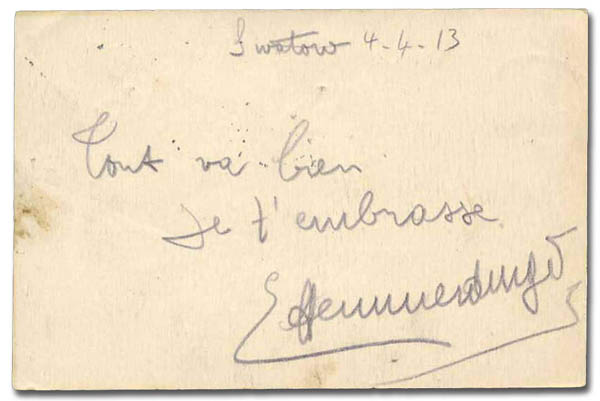 Swatow 4-4-13
Tout va bien
Je t'embrasse